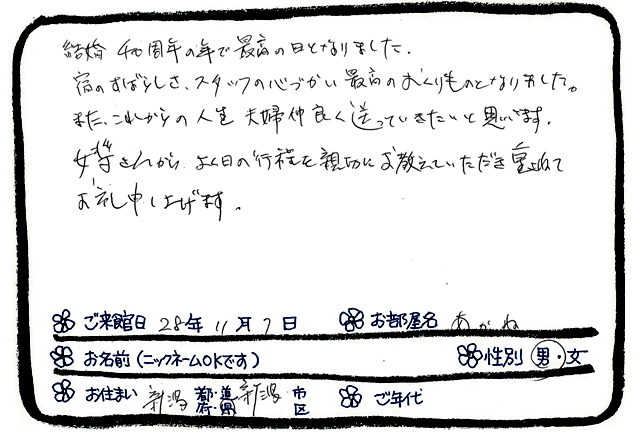 結婚40周年の年で最高の日となりました.
宿のすばらしさ、スタッフの心づかい最高のおくりものとなりました。
また、これからの人生夫婦仲良く送っていきたいと思います.
女将さんから、よく日の行程を親切にお教えていただき重ねて
お礼申し上げます。
ご来館日 28年 11月7日 お部屋名 あかね
お名前(ニックネームOKです) 性別 男・女
お住まい 新潟 都・道府・県 新潟 市区 ご年代